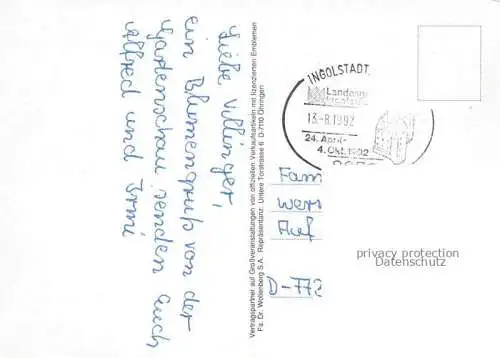 Liebe Villinger,
ein Blumengruß von der
Gartenschau senden Euch
Alfred und Irmi
Vertragspartner auf Großveranstaltungen von offiziellen Verkaufsartikeln mit lizenzierten Emblemen
Fa. Dr. Wollenberg S.A. Repräsentanz: Untere Torstrasse 6 D-7110 Öhringen
INGOLSTADT
13.-8.1992
24. April-
4. Okt. 1992
Fam
Wer
Auf
D-772
privacy protection
Datenschutz